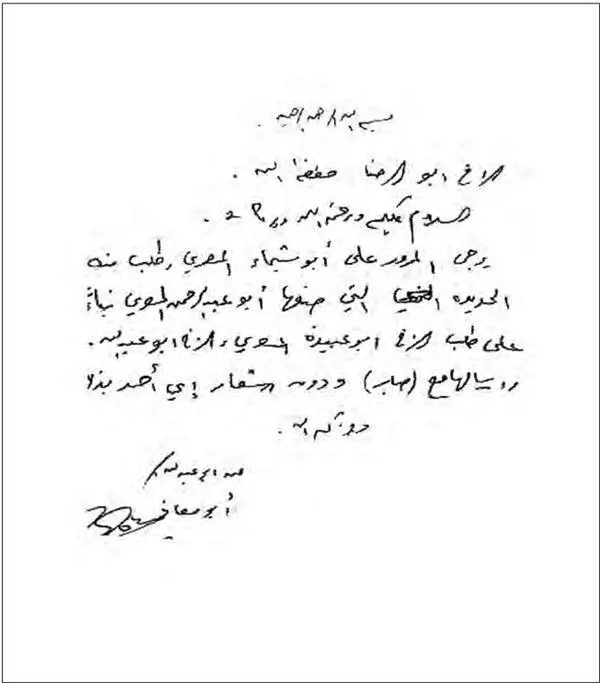 بسم الله الرحمن الرحيم .
الاخ ابو الرضا حفظه الله .
السلام عليكم ورحمة الله وبركاته .
يرجى المرور على أبو شيماء المصري وطلب منه
الحديده التي صنعها أبو عبدالرحمن المصري بناءً
على طلب الاخ ابو عبيدة المصري والاخ ابو عبدالله .
وارسالها مع (صابر) ودون اشعار إي أحد بذلك
وبارك الله .
أبو معاذ